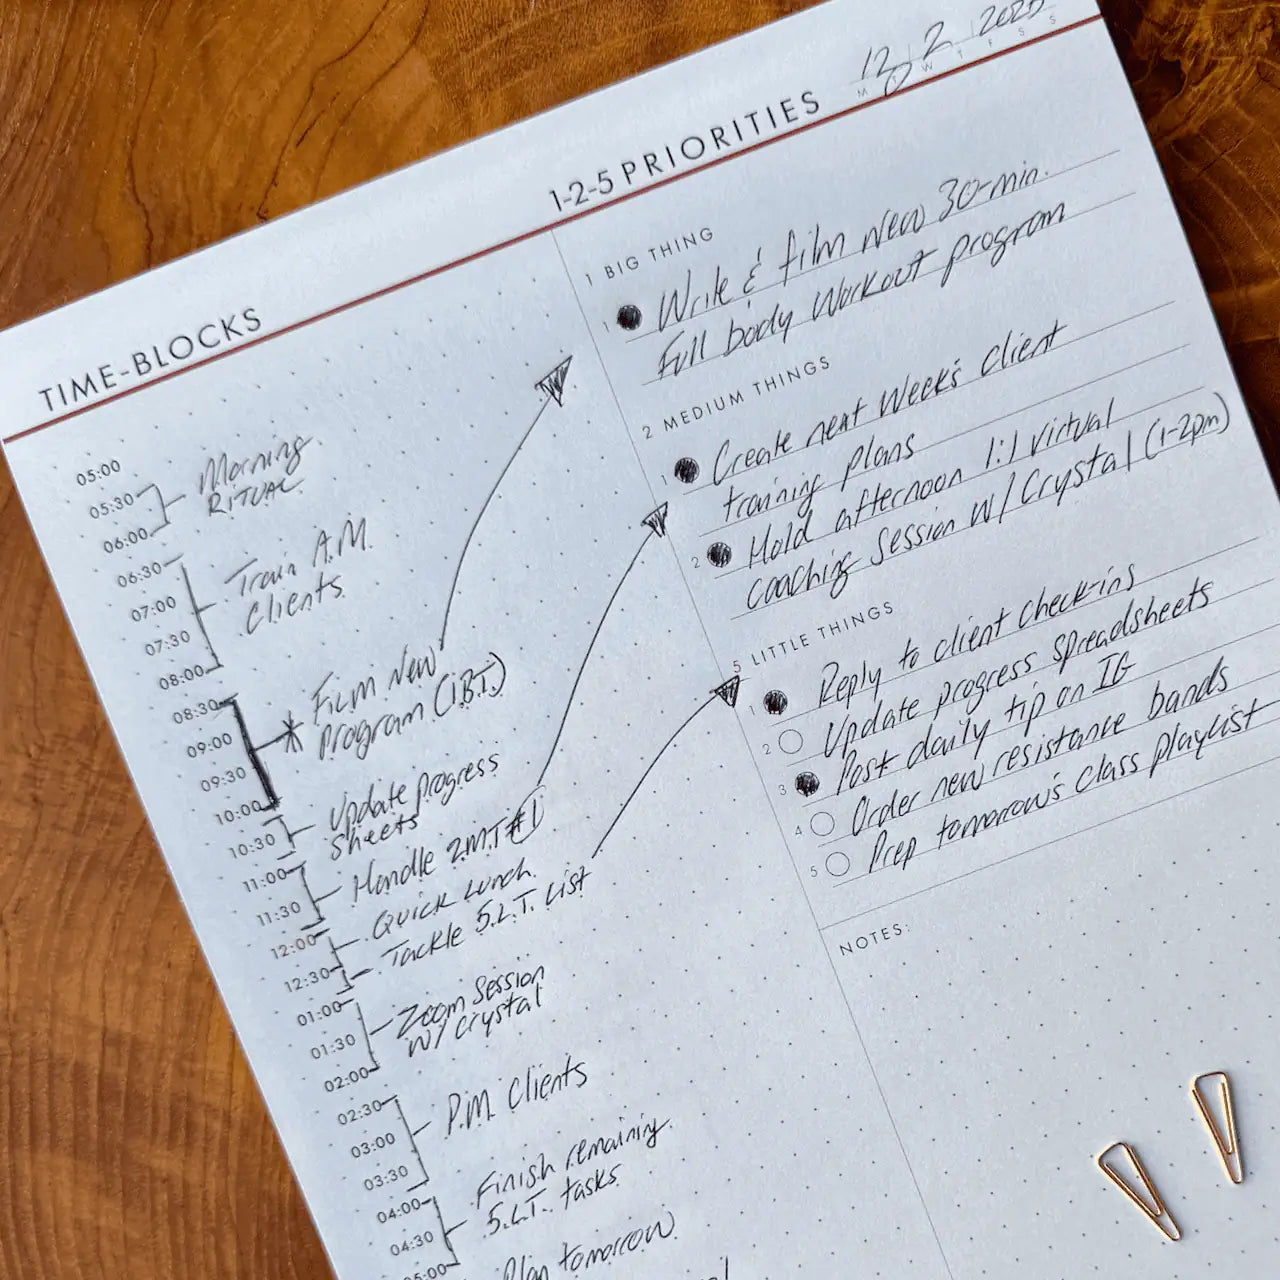 12 2 2025
M T W T F S S
TIME-BLOCKS
05:00
05:30
06:00
06:30
07:00
07:30
08:00
08:30
09:00
09:30
10:00
10:30
11:00
11:30
12:00
12:30
01:00
01:30
02:00
02:30
03:00
03:30
04:00
04:30
05:00
Morning
RITUAL
Train A.M.
Clients
Film New
program (1.B.T.)
Update progress
sheets
Handle 2.M.T #1
Quick Lunch
Tackle 5.L.T. List
Zoom Session
w/ Crystal
P.M. Clients
Finish remaining
5.L.T. tasks
Plan tomorrow
1-2-5 PRIORITIES
1 BIG THING
1 Write & film new 30-min.
Full body workout program
2 MEDIUM THINGS
1 Create next week's client
training plans
2 Hold afternoon 1:1 virtual
coaching session w/ Crystal (1-2pm)
5 LITTLE THINGS
1 Reply to client check-ins
2 Update progress spreadsheets
3 Post daily tip on IG
4 Order new resistance bands
5 Prep tomorrow's class playlist
NOTES: